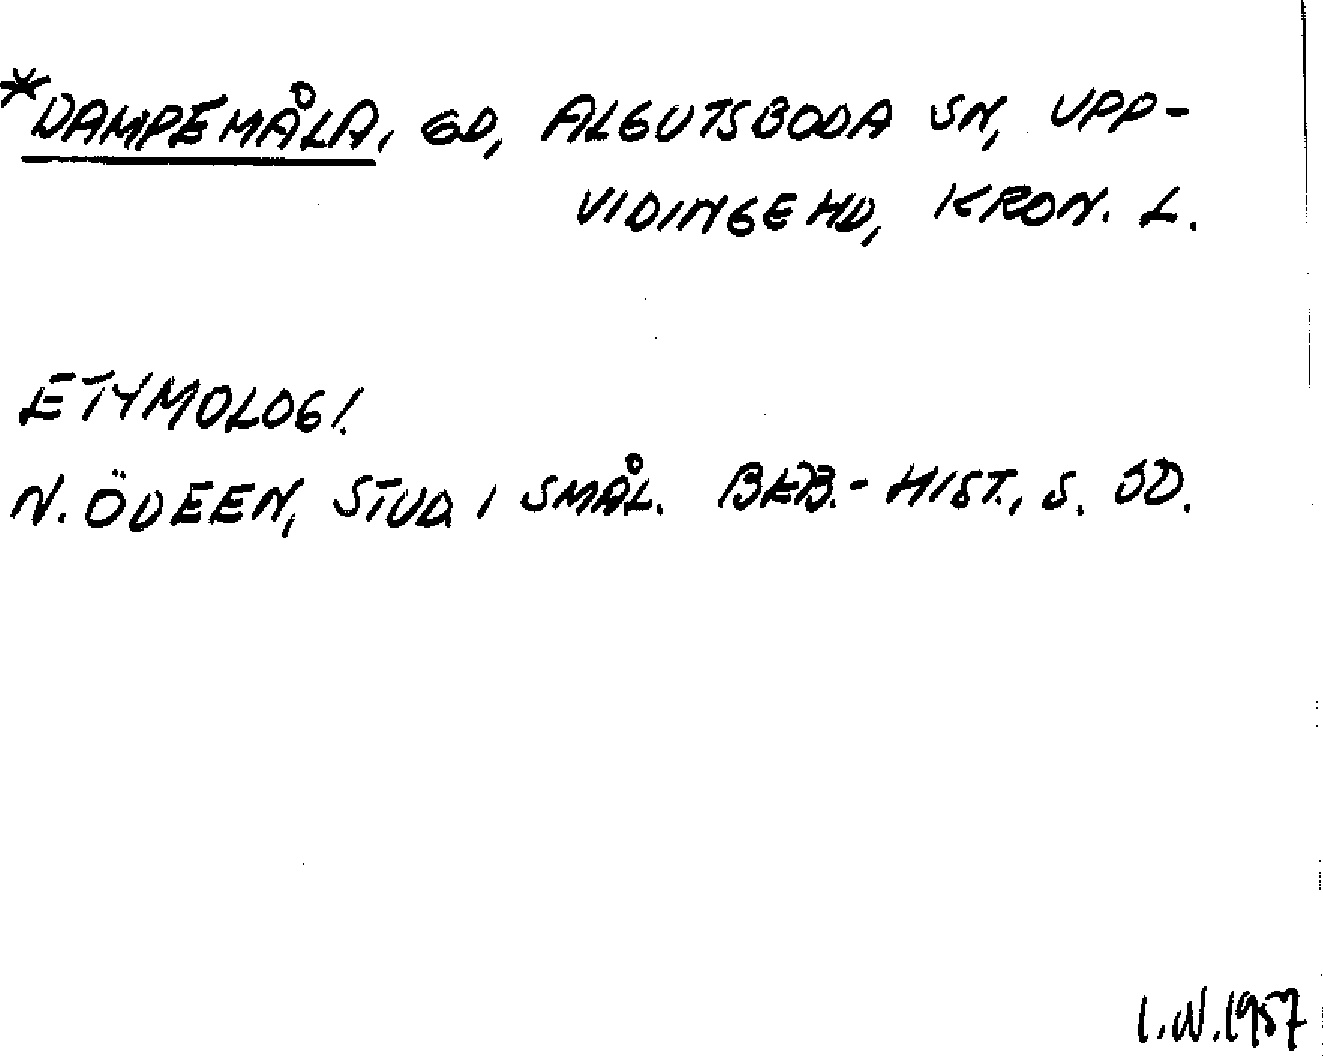 *DAMPEMÅLA, GD, ALGUTSBODA SN, UPP-
VIDINGE HD, KRON. L.
ETYMOLOGI.
N. ÖDEEN, STUD. I SMÅL. BEB.-HIST., S.
I.W. 1957